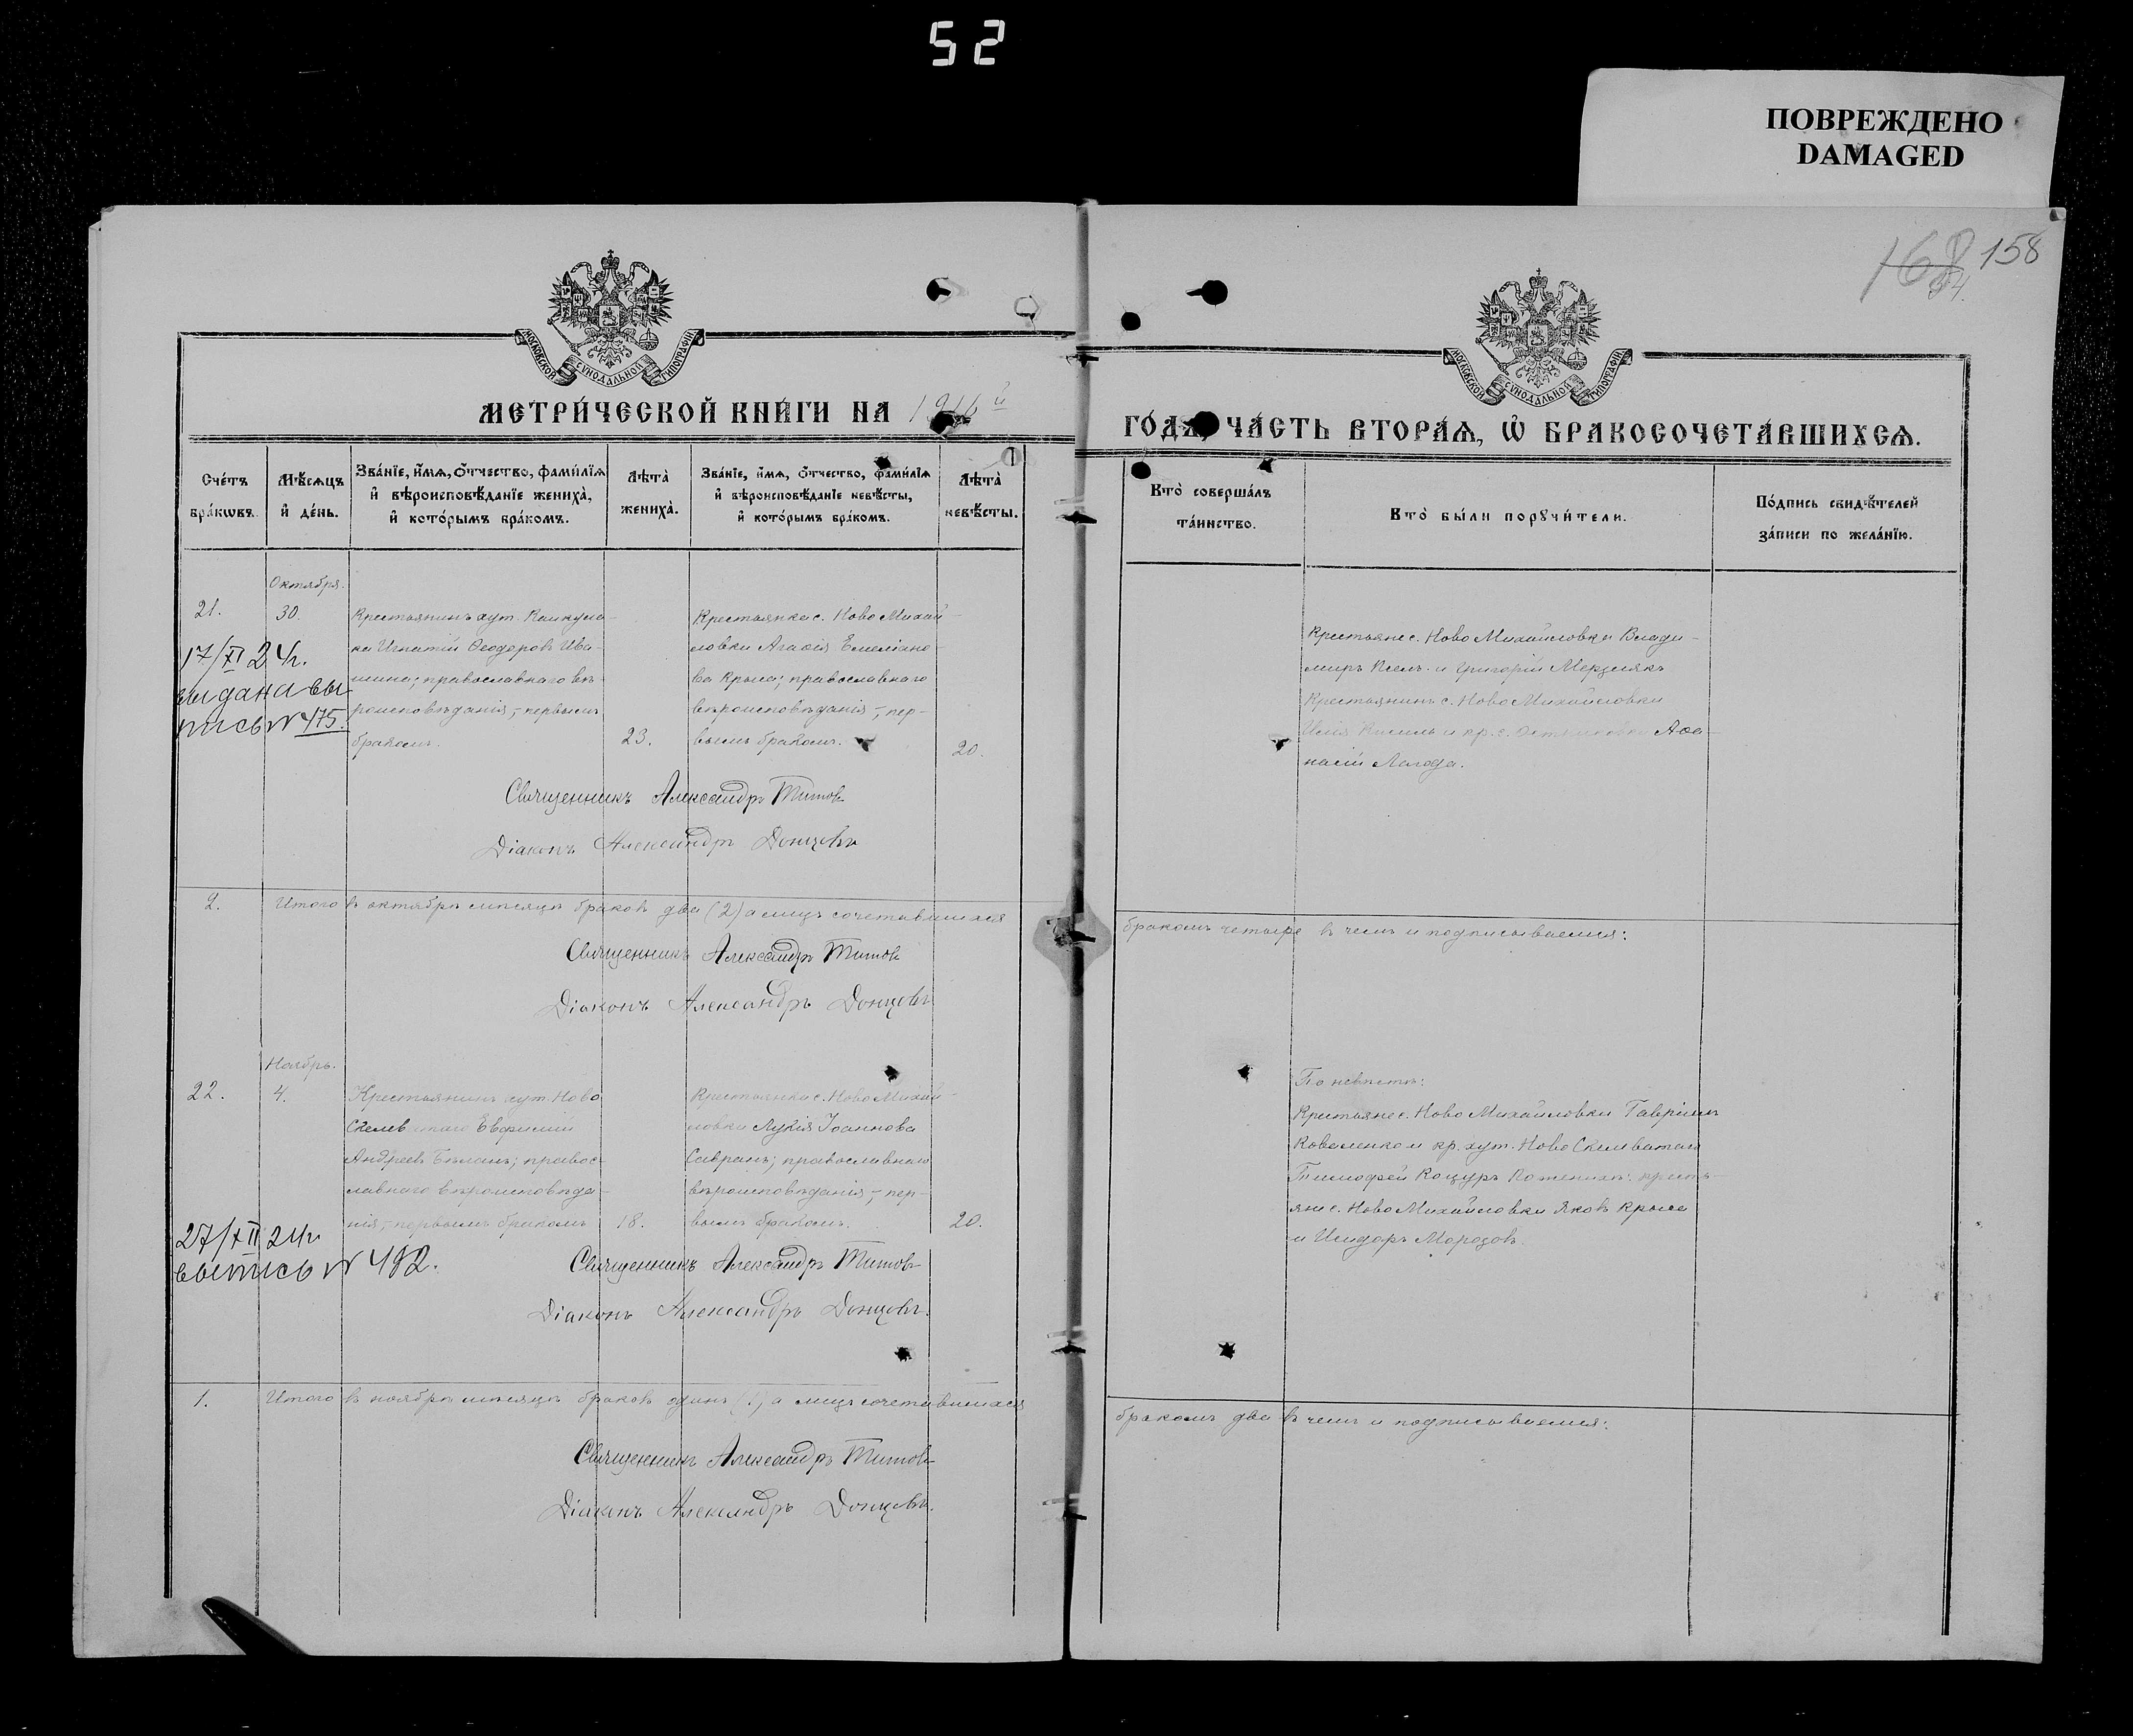 52
ПОВРЕЖДЕНО
DAMAGED
158
МОСКОВСКОЙ СѴНОДАЛЬНОЙ ТИПОГРАФІИ
МОСКОВСКОЙ СѴНОДАЛЬНОЙ ТИПОГРАФІИ
МЕТРИ́ЧЕСКОЙ КНИ́ГИ НА
ГО́ДЪ, ЧА́СТЬ ВТОРА́Ѧ, Ѡ҆ БРАКОСОЧЕТА́ВШИХСѦ.
Сче́тъ
бра́кѡвъ.
Мѣ́сѧцъ
и҆ де́нь.
Зва́нїе, и҆́мѧ, ѻ҆́тчество, фами́лїѧ
и҆ вѣроисповѣ́данїе жениха̀,
и҆ кото́рымъ бра́комъ.
Лѣ́та
жениха̀.
Зва́нїе, и҆́мѧ, ѻ҆́тчество, фами́лїѧ
и҆ вѣроисповѣ́данїе невѣ́сты,
и҆ кото́рымъ бра́комъ.
Лѣ́та
невѣ́сты.
Кто̀ соверша́лъ
та́инство.
Кто̀ бы́ли порꙋчи́тели.
По́дпись свидѣ́телей
за́писи по жела́нїю.
Октября.
21.
30.
Крестьянинъ хут.
ки Игнатій Ѳеодоровъ Ива-
шина; православнаго вѣ-
роисповѣданія,- первымъ
бракомъ.
23.
Крестьянка с. Ново Михай-
ловки Агафія Емеліано-
ва Крыса; православнаго
вѣроисповѣданія,- пер-
вымъ бракомъ.
20.
17/XI 24г.
выдана вы
пись № 475.
Крестьяне с. Ново Михайловки Влади-
миръ и Григорій Мерзлякъ
Крестьянинъ с. Ново Михайловки
и кр. с. Аѳа-
насій Лагода.
Священникъ Александръ Титовъ
Діаконъ Александръ Донцовъ
2.
Итого въ октябрѣ мѣсяцѣ браковъ два (2) а лицъ сочетавшихся
бракомъ четыре въ чемъ и подписываемся:
Священникъ Александръ Титовъ
Діаконъ Александръ Донцовъ
Ноябрь.
22.
4.
Крестьянинъ хут. Ново
Скелев Евфимій
Андреевъ Бѣланъ; правос-
лавнаго вѣроисповѣда-
нія,- первымъ бракомъ
18.
Крестьянка с. Ново Михай-
ловки Лукія Іоаннова
Савранъ; православнаго
вѣроисповѣданія,- пер-
вымъ бракомъ.
20.
27/XII 24г.
выпись № 492.
По невѣстѣ:
Крестьяне с. Ново Михайловки Гавріилъ
Коваленко и кр. хут. Ново
Тимофей Коцуръ По женихѣ: кресть-
яне с. Ново Михайловки Яковъ Крыса
и Исидоръ Морозовъ.
Священникъ Александръ Титовъ
Діаконъ Александръ Донцовъ.
1.
Итого въ ноябрѣ мѣсяцѣ браковъ одинъ (1) а лицъ сочетавшихся
бракомъ два въ чемъ и подписываемся:
Священникъ Александръ Титовъ
Діаконъ Александръ Донцовъ.